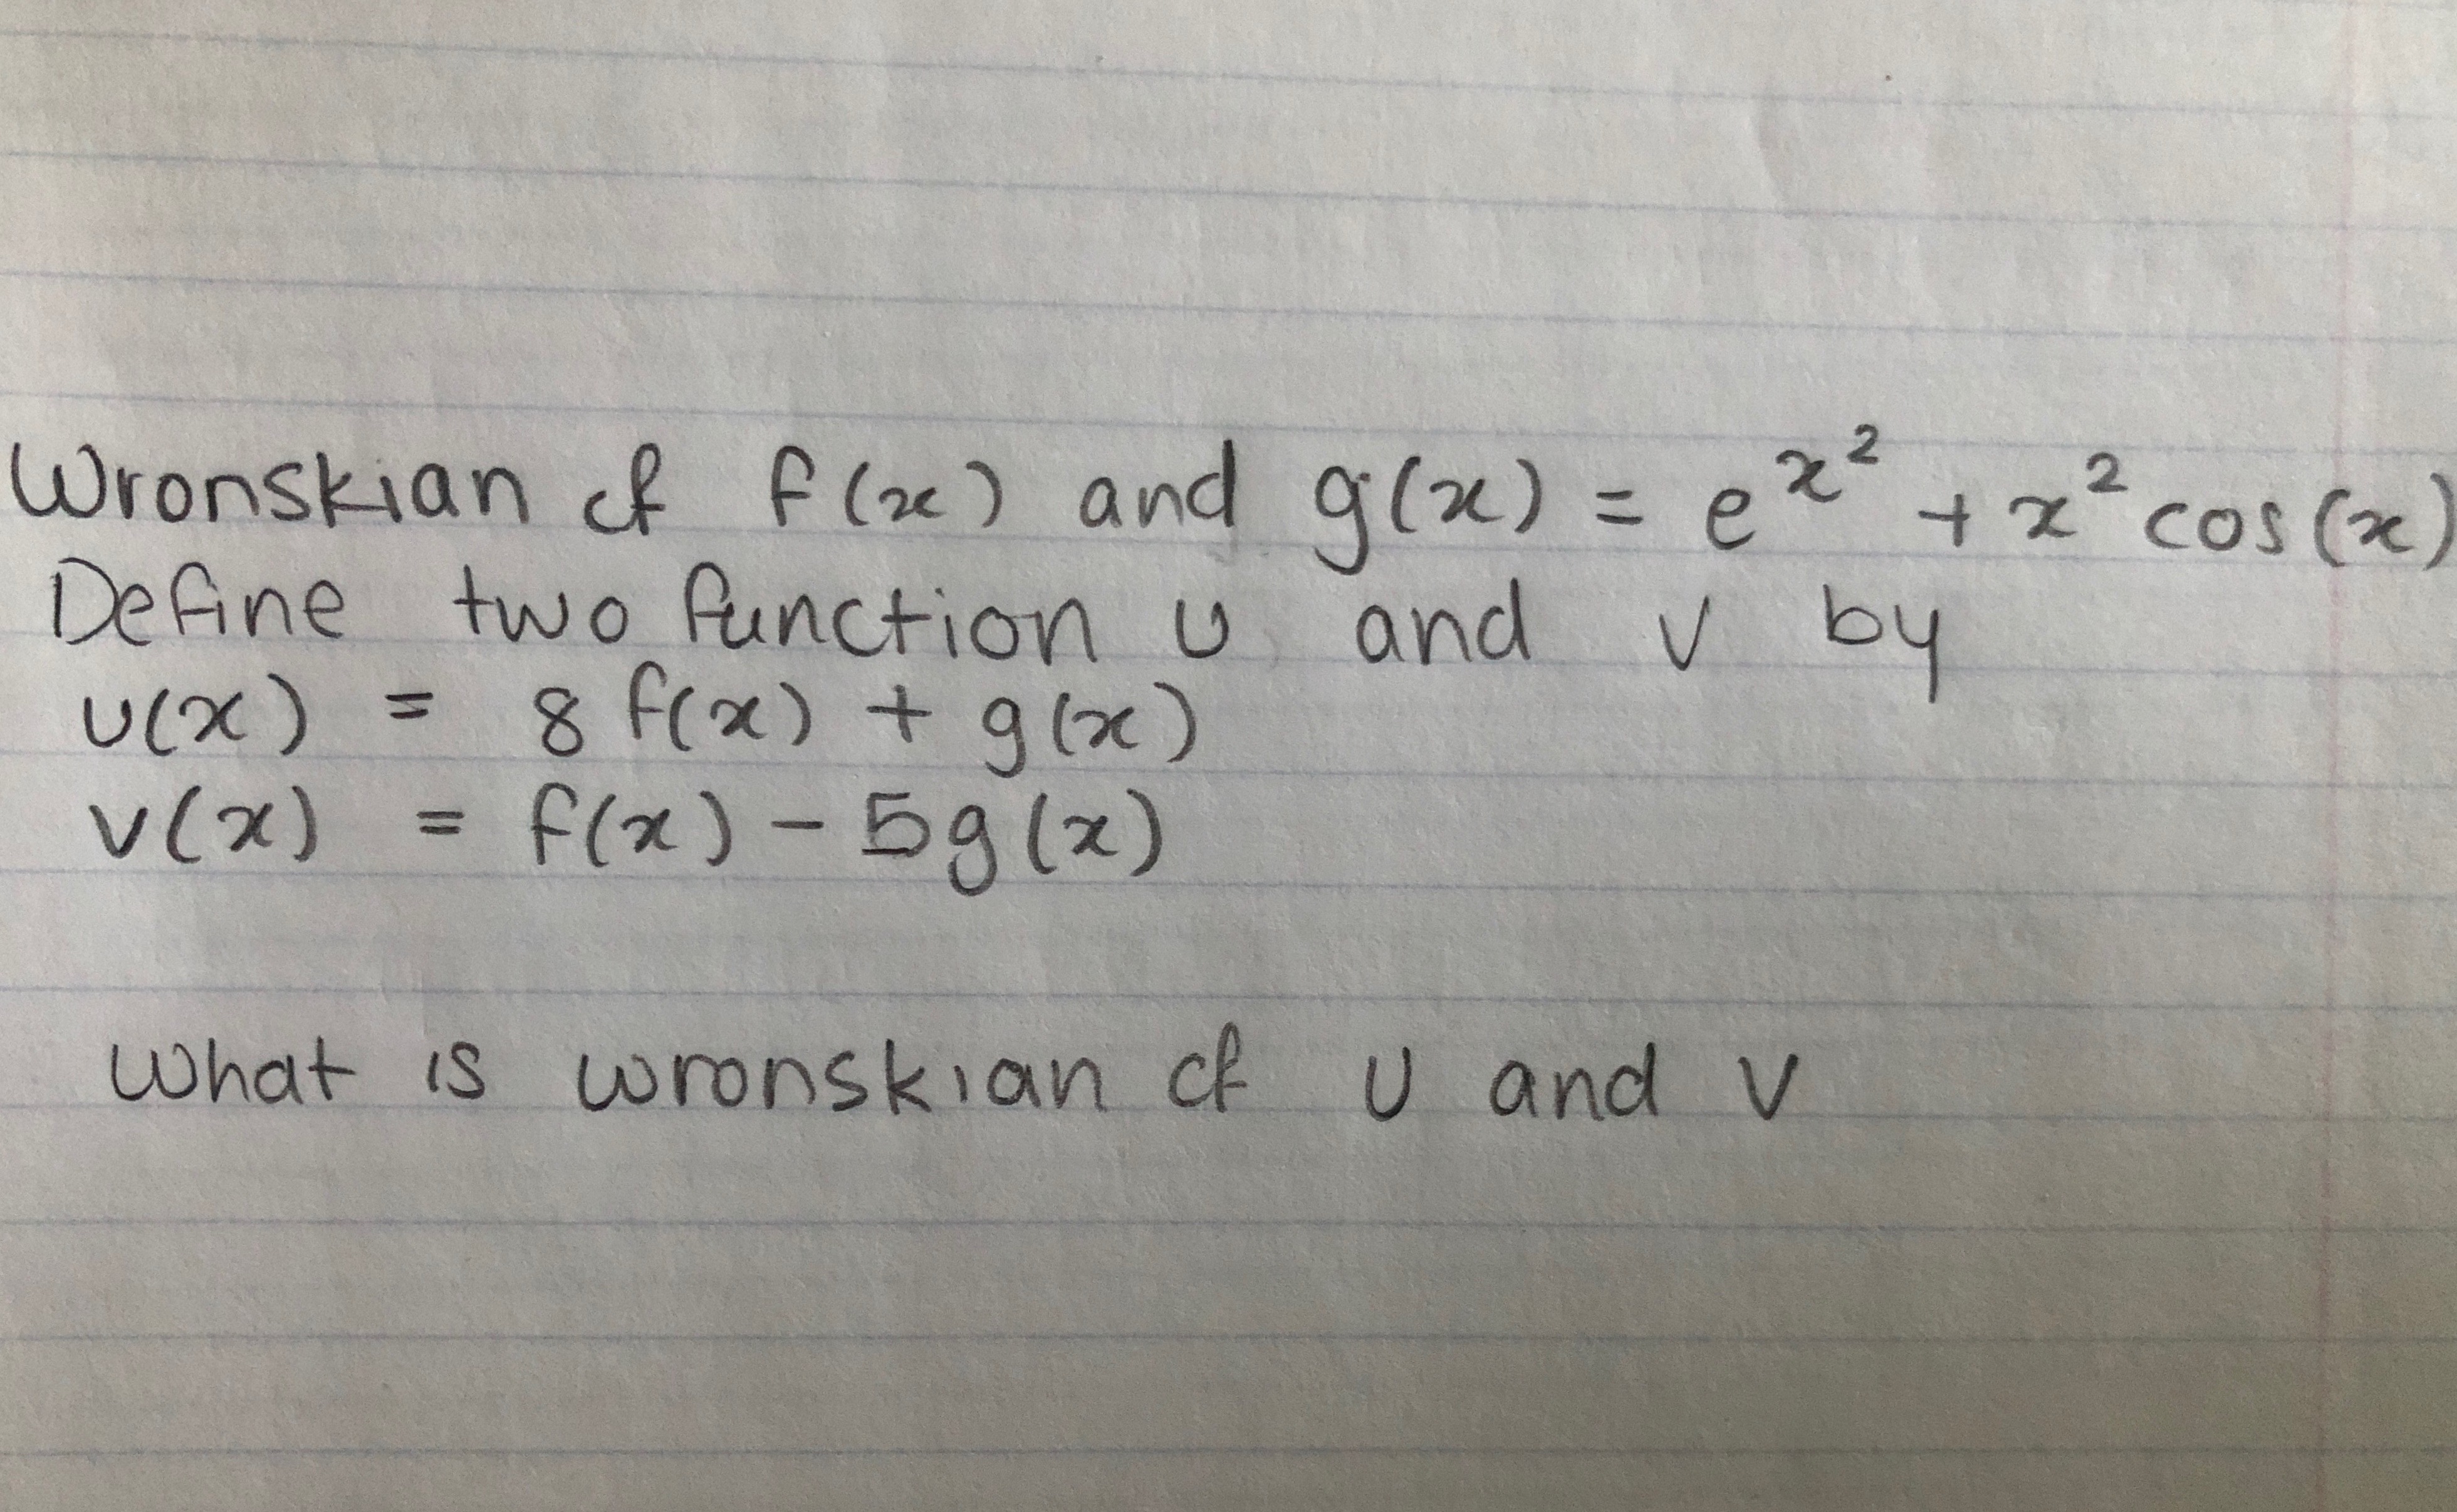 Wronskian of f(x) and g(x) = e^x^2 + x^2 cos(x)
Define two function u and v by
u(x) = 8 f(x) + g(x)
v(x) = f(x) - 5g(x)
What is wronskian of u and v